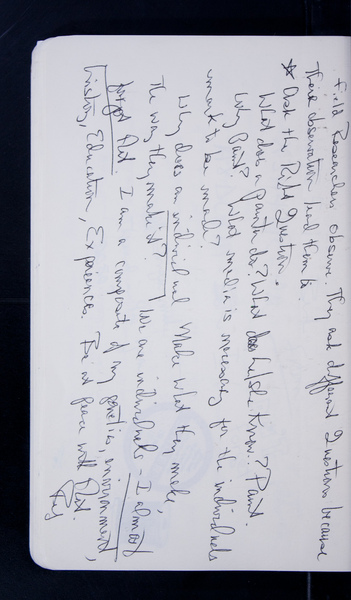 Field Researchers observe. They ask different Questions because
There observation lead them to.
* Ask the Right Question.
What does a Painter do? What does he/she Know? Paint.
Why Paint? What media is necessary for the individuals
mark to be made?
Why does an individual Make what they make,
The way they make it? We are individuals - I almost
forgot that. I am a composite of my genetics, environment,
history, Education, Experiences. Be at peace with that.